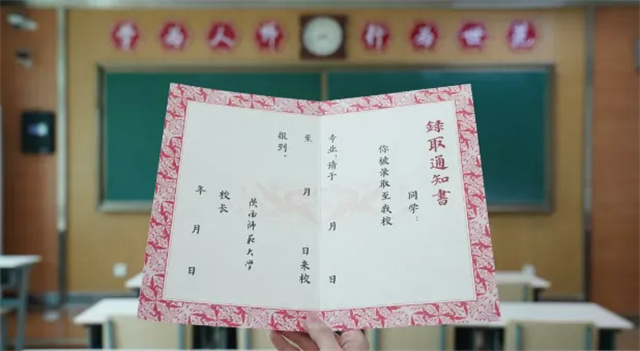 学为人师 行为世范
錄取通知書
同学：
你被录取至我校
专业，请于 月 日
至 月 日来校
报到。
陕西师範大学
校长
年 月 日